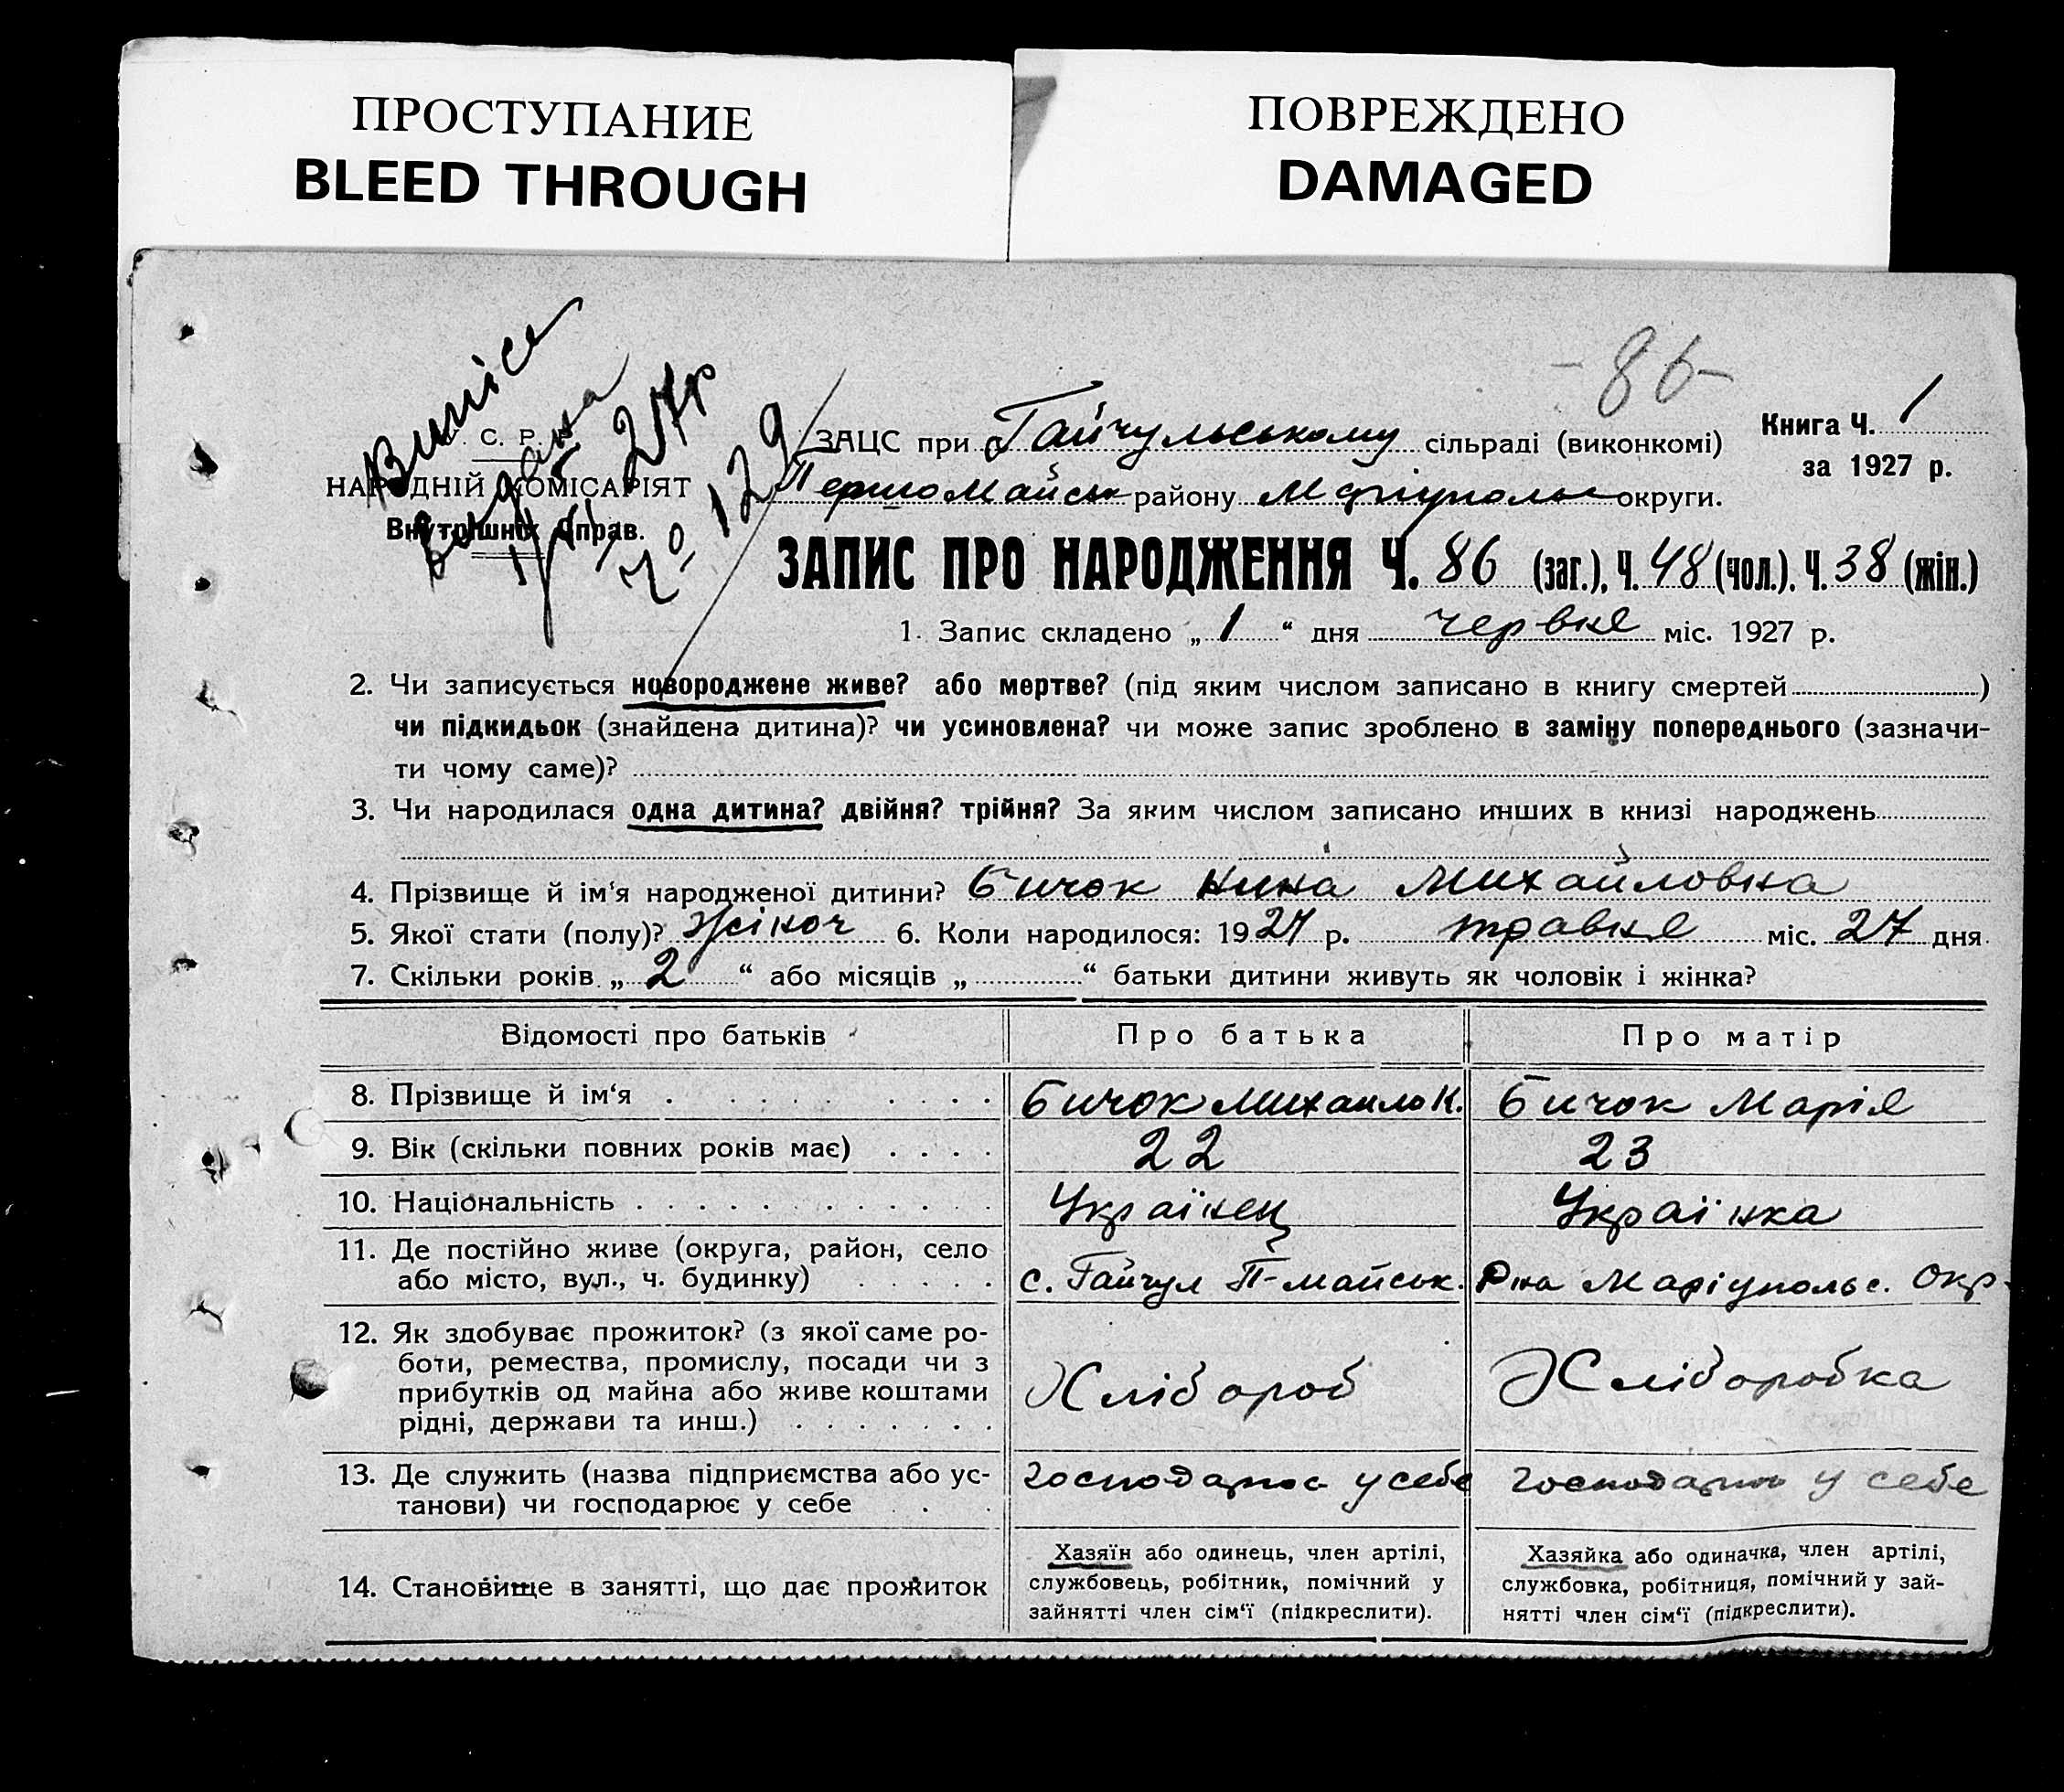 ПРОСТУПАНИЕ
BLEED THROUGH
ПОВРЕЖДЕНО
DAMAGED
-86-
Випіс
видана
27р
№ 129
У. С. Р. Р.
НАРОДНІЙ КОМІСАРІЯТ
Внутрішніх Справ.
ЗАЦС при Гайчульському сільраді (виконкомі)
ПершоМайськ району Маріупольс округи.
Книга Ч. 1
за 1927 р.
ЗАПИС ПРО НАРОДЖЕННЯ Ч. 86 (заг.), Ч. 48 (чол.). Ч. 38 (жін.)
1. Запис складено „ 1 “ дня червня міс. 1927 р.
2. Чи записується новороджене живе? або мертве? (під яким числом записано в книгу смертей )
чи підкидьок (знайдена дитина)? чи усиновлена? чи може запис зроблено в заміну попереднього (зазначи-
ти чому саме)?
3. Чи народилася одна дитина? двійня? трійня? За яким числом записано инших в книзі народжень
4. Прізвище й ім‘я народженої дитини? Бичок Нина Михайловна
5. Якої стати (полу)? жіноч 6. Коли народилося: 1927 р. травня міс. 27 дня
7. Скільки років „ 2 “ або місяців „ “ батьки дитини живуть як чоловік і жінка?
Відомості про батьків Про батька Про матір
8. Прізвище й ім‘я Бичок Михаило К. Бичок Марія
9. Вік (скільки повних років має) 22 23
10. Національність Українец Українка
11. Де постійно живе (округа, район, село
або місто, вул., ч. будинку) с. Гайчул П-майськ. Рна Маріупольс. Окр.
12. Як здобуває прожиток? (з якої саме ро-
боти, ремества, промислу, посади чи з
прибутків од майна або живе коштами
рідні, держави та инш.) Хлібороб Хліборобка
13. Де служить (назва підприємства або ус-
танови) чи господарює у себе господарює у себе господарює у себе
14. Становище в занятті, що дає прожиток
Хазяїн або одинець, член артілі,
службовець, робітник, помічний у
зайнятті член сім‘ї (підкреслити).
Хазяйка або одиначка, член артілі,
службовка, робітниця, помічний у зай-
нятті член сім‘ї (підкреслити).